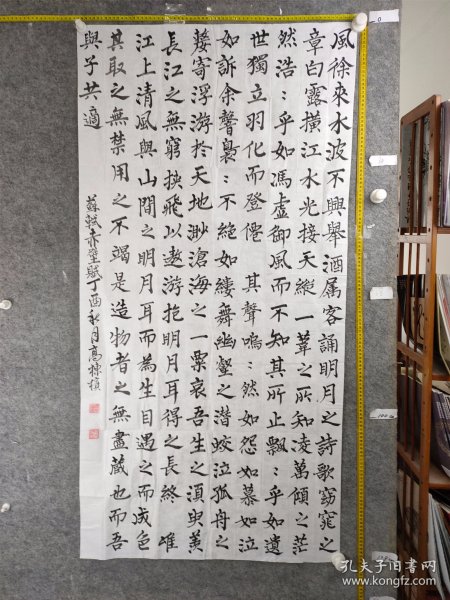 風徐來水波不興舉酒属客誦明月之詩歌窈窕之
章白露橫江水光接天縱一葦之所知凌萬頃之茫
然浩:乎如馮虛御風而不知其所止飄:乎如遺
世獨立羽化而登僊 其聲嗚:然如怨如慕如泣
如訴余聲裊:不絕如縷舞幽壑之潛蛟泣孤舟之
嫠寄浮游於天地渺滄海之一粟哀吾生之須臾羨
長江之無窮挾飛以遨游抱明月耳得之長終 唯
江上清風與山間之明月耳而為生目遇之而成色
其取之無禁用之不竭是造物者之無盡藏也而吾
與子共適
蘇軾赤壁賦丁酉秋月高棟楨
孔夫子旧书网
www.kongfz.com